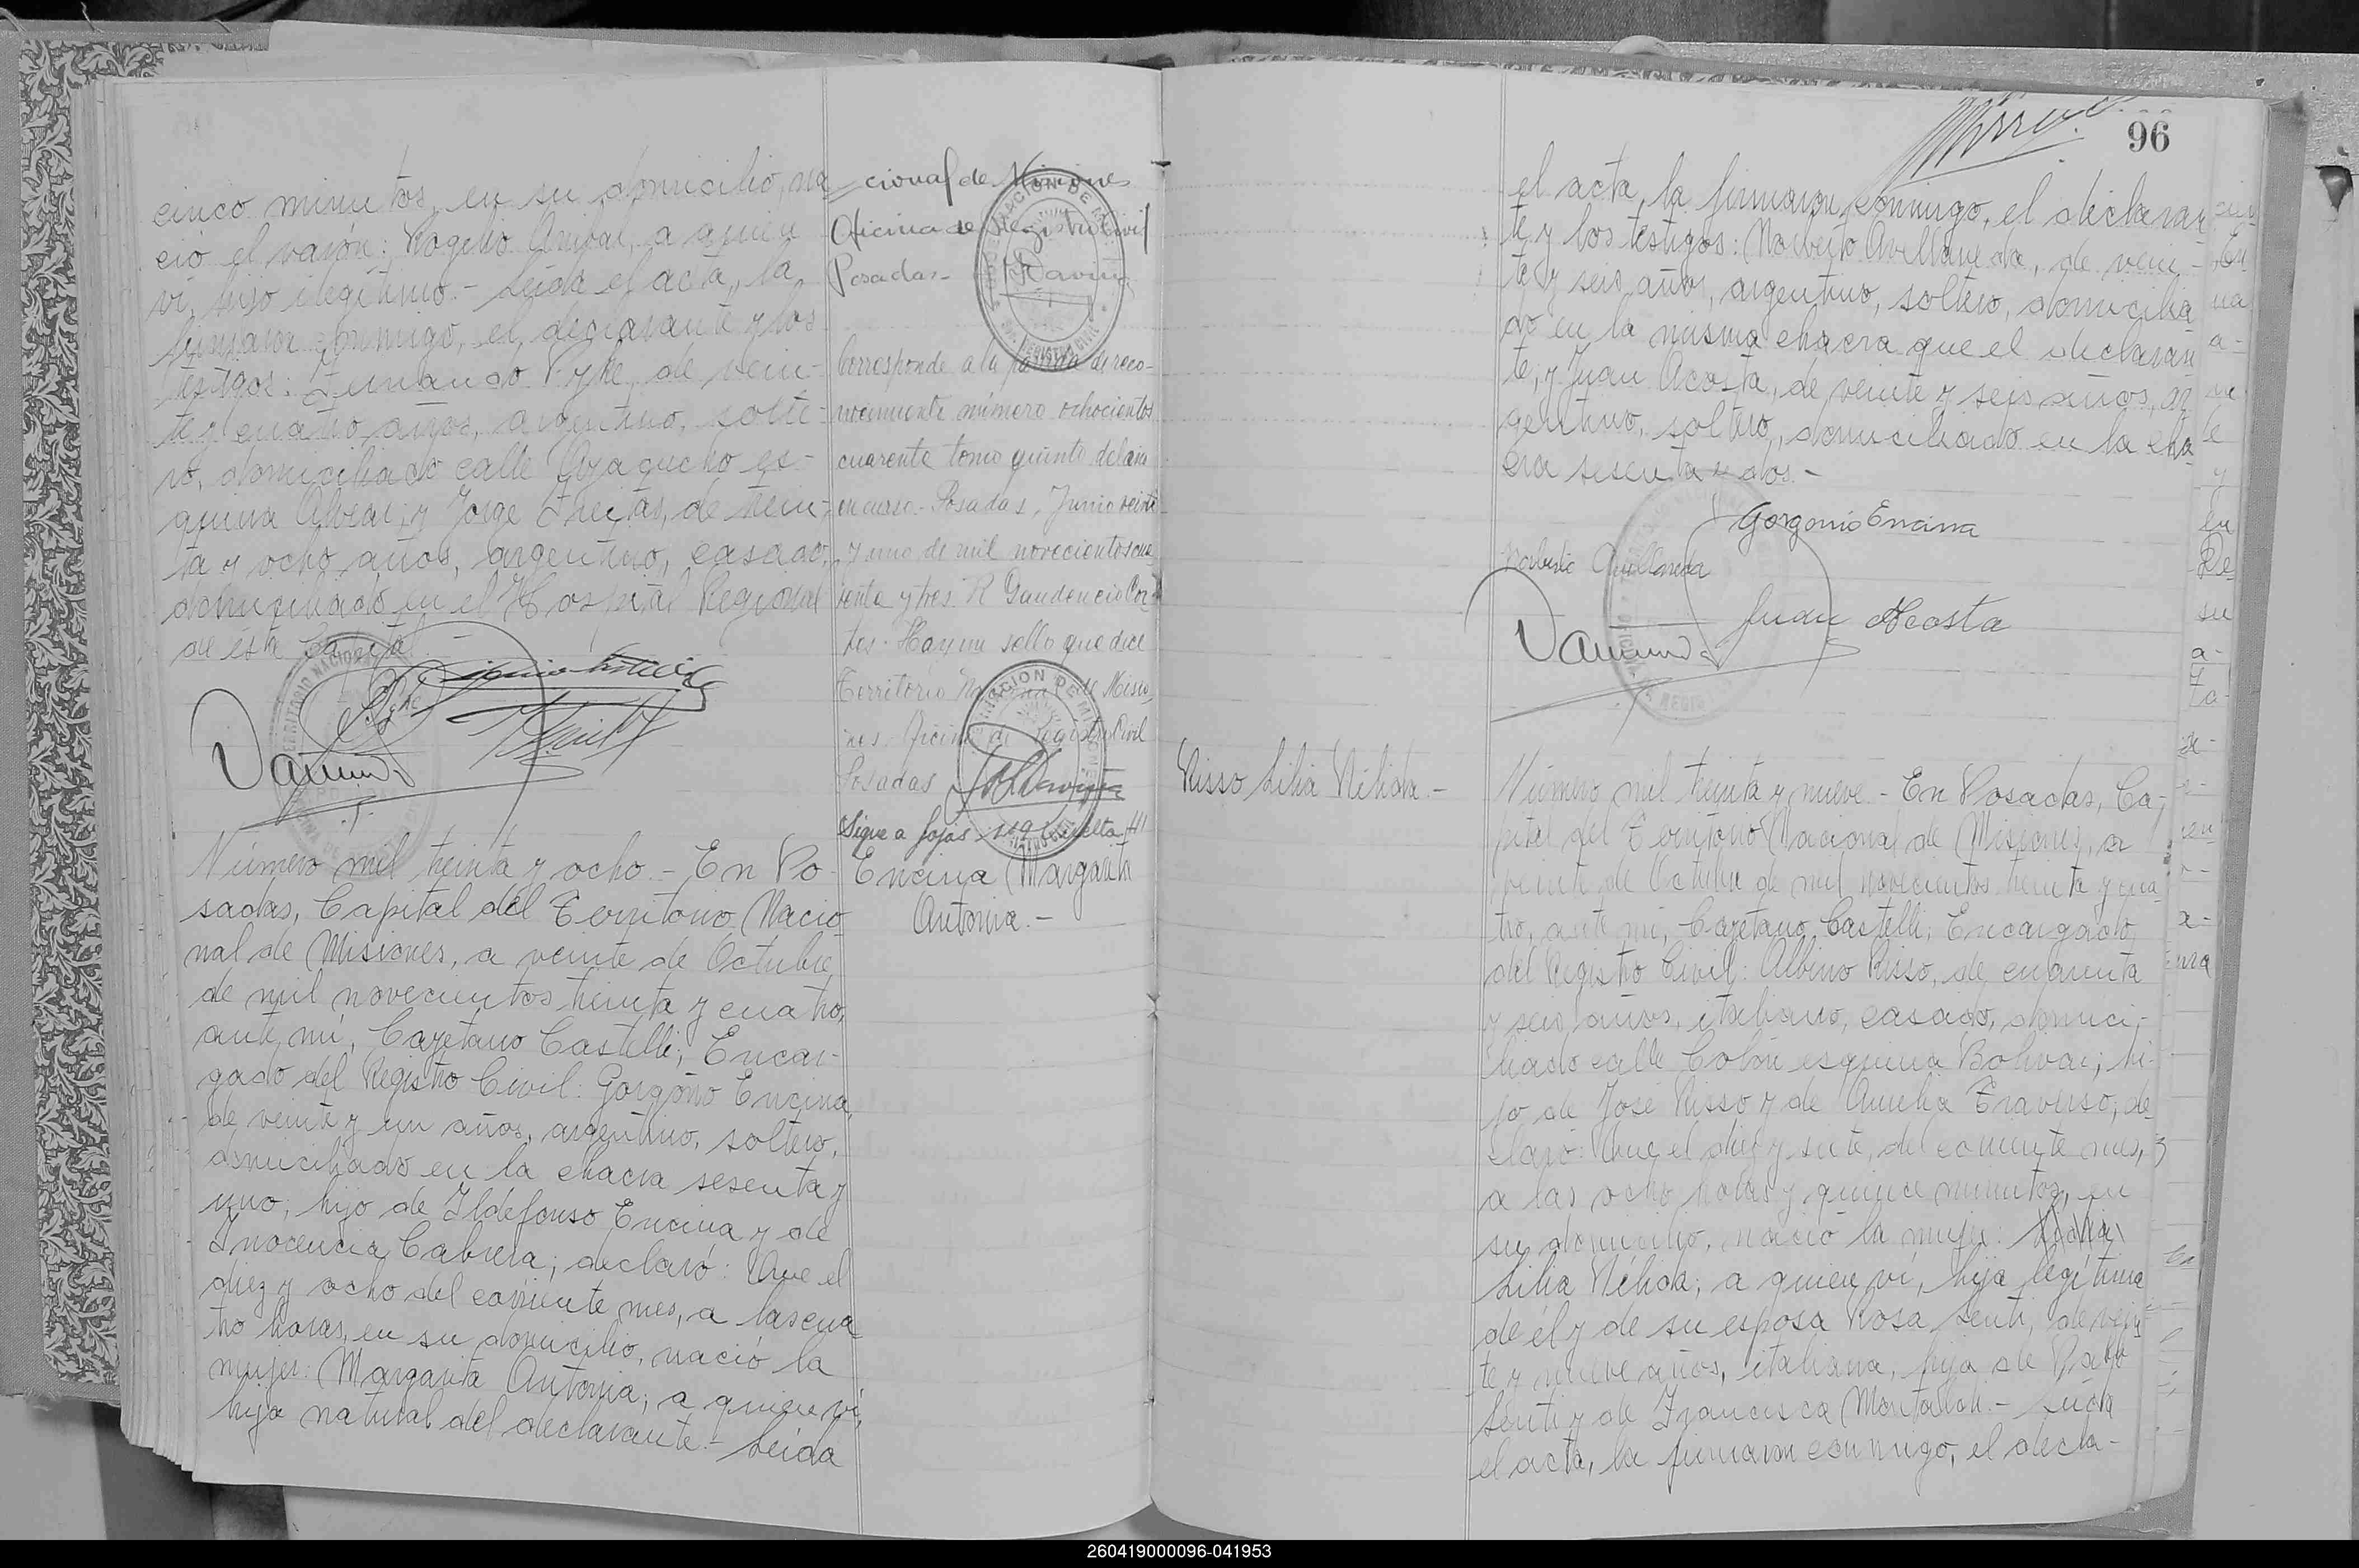 cinco minutos, en su domicilio, na
ció el varón: Rogelio Anibal, a quien
ví, hijo ilegítimo.- Leída el acta, la
firmaron conmigo, el declarante y los
testigos: Fernando Pyke, de vein-
te y cuatro años, argentino, solte-
ro, domiciliado calle Ayacucho es-
quina Alvear; y Jorge Freitas, de trein-
ta y ocho años, argentino, casado,
domiciliado en el Hospital Regional
de esta Capital.-
cional de Misiones
Oficina de Registro Civil
Posadas-
Corresponde a la partida de reco-
nocimiento número ochocientos
cuarenta tomo quinto del año
en curso.- Posadas, Junio veinte
y uno de mil novecientos cua
renta y tres. R Gaudencio Cor-
tes. Hay un sello que dice
Territorio Nacional de Misio
nes. Oficina de Registro Civil
Posadas
Sigue a fojas 119 vuelta
Número mil treinta y ocho.- En Po-
sadas, Capital del Territorio Nacio
nal de Misiones, a veinte de Octubre
de mil novecientos treinta y cuatro,
ante mí, Cayetano Castelli, Encar-
gado del Registro Civil: Gorgonio Encina,
de veinte y un años, argentino, soltero,
domiciliado en la chacra sesenta y
uno; hijo de Ildefonso Encina y de
Inocencia Cabrera; declaró: Que el
diez y ocho del corriente mes, a las cua
tro horas, en su domicilio, nació la
mujer: Margarita Antonia; a quien ví,
hija natural del declarante.- Leída
Encina Margarita
Antonia.-
96
el acta, la firmaron conmigo, el declaran
te y los testigos: Norberto Avellaneda, de vein-
te y seis años, argentino, soltero, domicilia
do en la misma chacra que el declaran
te, y Juan Acosta, de veinte y seis años, ar
gentino, soltero, domiciliado en la cha
cra sesenta y dos.-
Gorgonio Encina
Norberto Avellaneda
Juan Acosta
Risso Lilia Nélida.-
Número mil treinta y nueve.- En Posadas, Ca-
pital del Territorio Nacional de Misiones, a
veinte de Octubre de mil novecientos treinta y cua
tro, ante mí, Cayetano Castelli, Encargado
del Registro Civil: Albino Risso, de cuarenta
y seis años, italiano, casado, domici-
liado calle Colón esquina Bolivar; hi-
jo de José Risso y de Amelia Traverso; de
claró: Que el diez y siete del corriente mes,
a las ocho horas y quince minutos, en
su domicilio, nació la mujer:
Lilia Nélida; a quien ví, hija legítima
de él y de su esposa Rosa Senti, de vein
te y nueve años, italiana, hija de
Senti y de Francisca .- Leída
el acta, la firmaron conmigo, el decla-
260419000096-041953